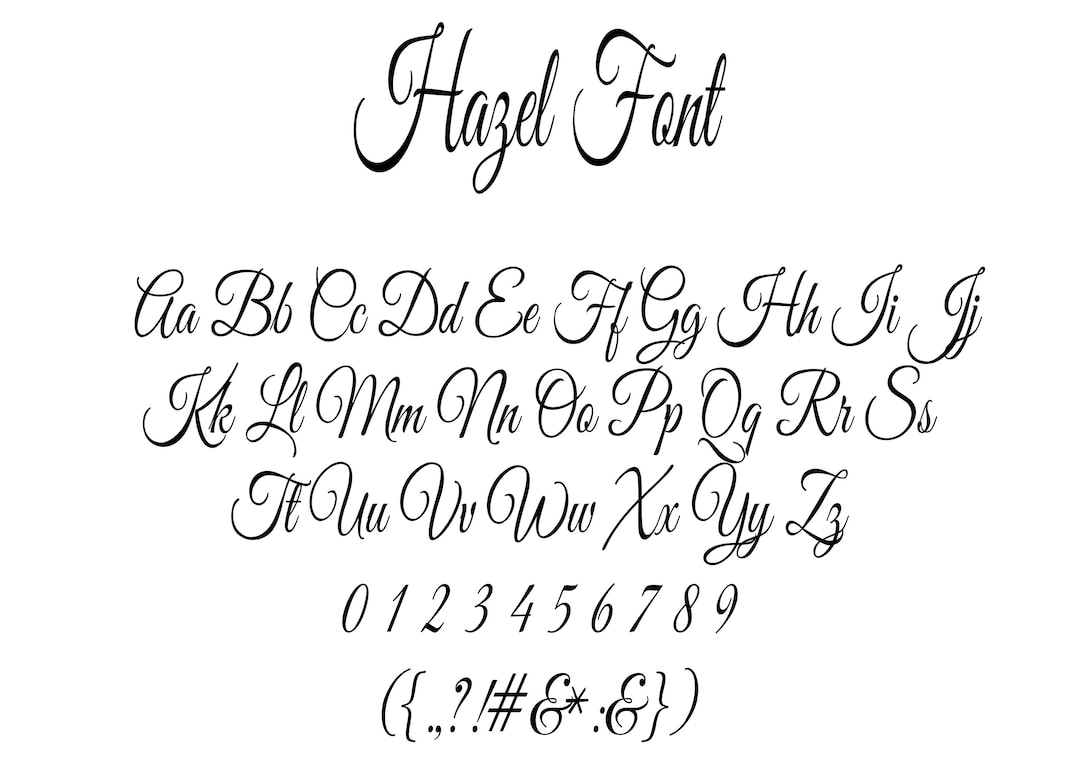 Hazel Font
Aa Bb Cc Dd Ee Ff Gg Hh Ii Jj
Kk Ll Mm Nn Oo Pp Qq Rr Ss
Tt Uu Vv Ww Xx Yy Zz
0 1 2 3 4 5 6 7 8 9
({.,?!#&*:&})